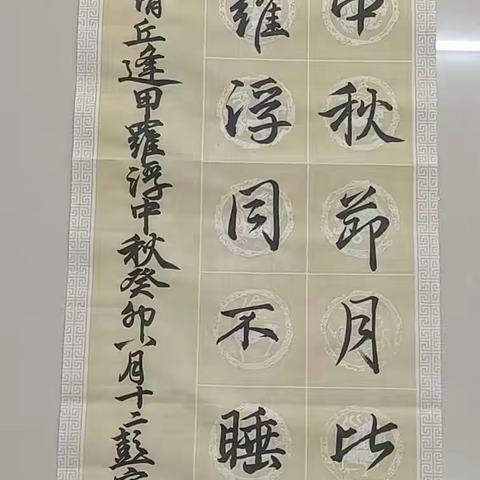 中秋节月比
羅浮同不睡
清丘逢甲羅浮中秋癸卯八月十二彭